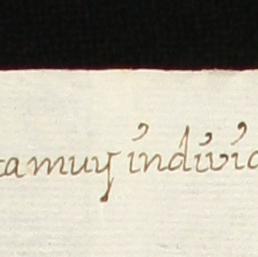 ta muy indivi